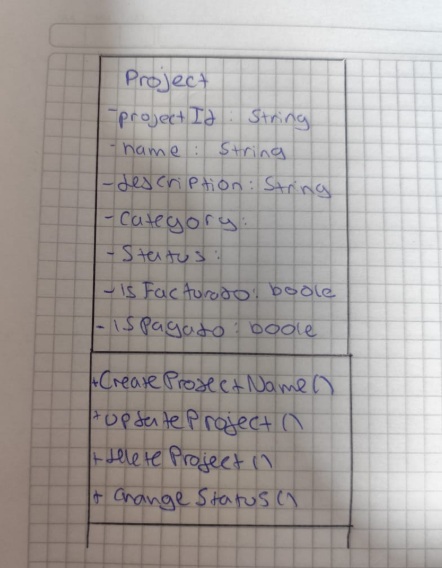 Project
-projectId: String
-name: String
-description: String
-Category:
-Status:
-isFacturado: boole
-isPagado: boole
+CreateProjectName()
+updateProject()
+deleteProject()
+changeStatus()